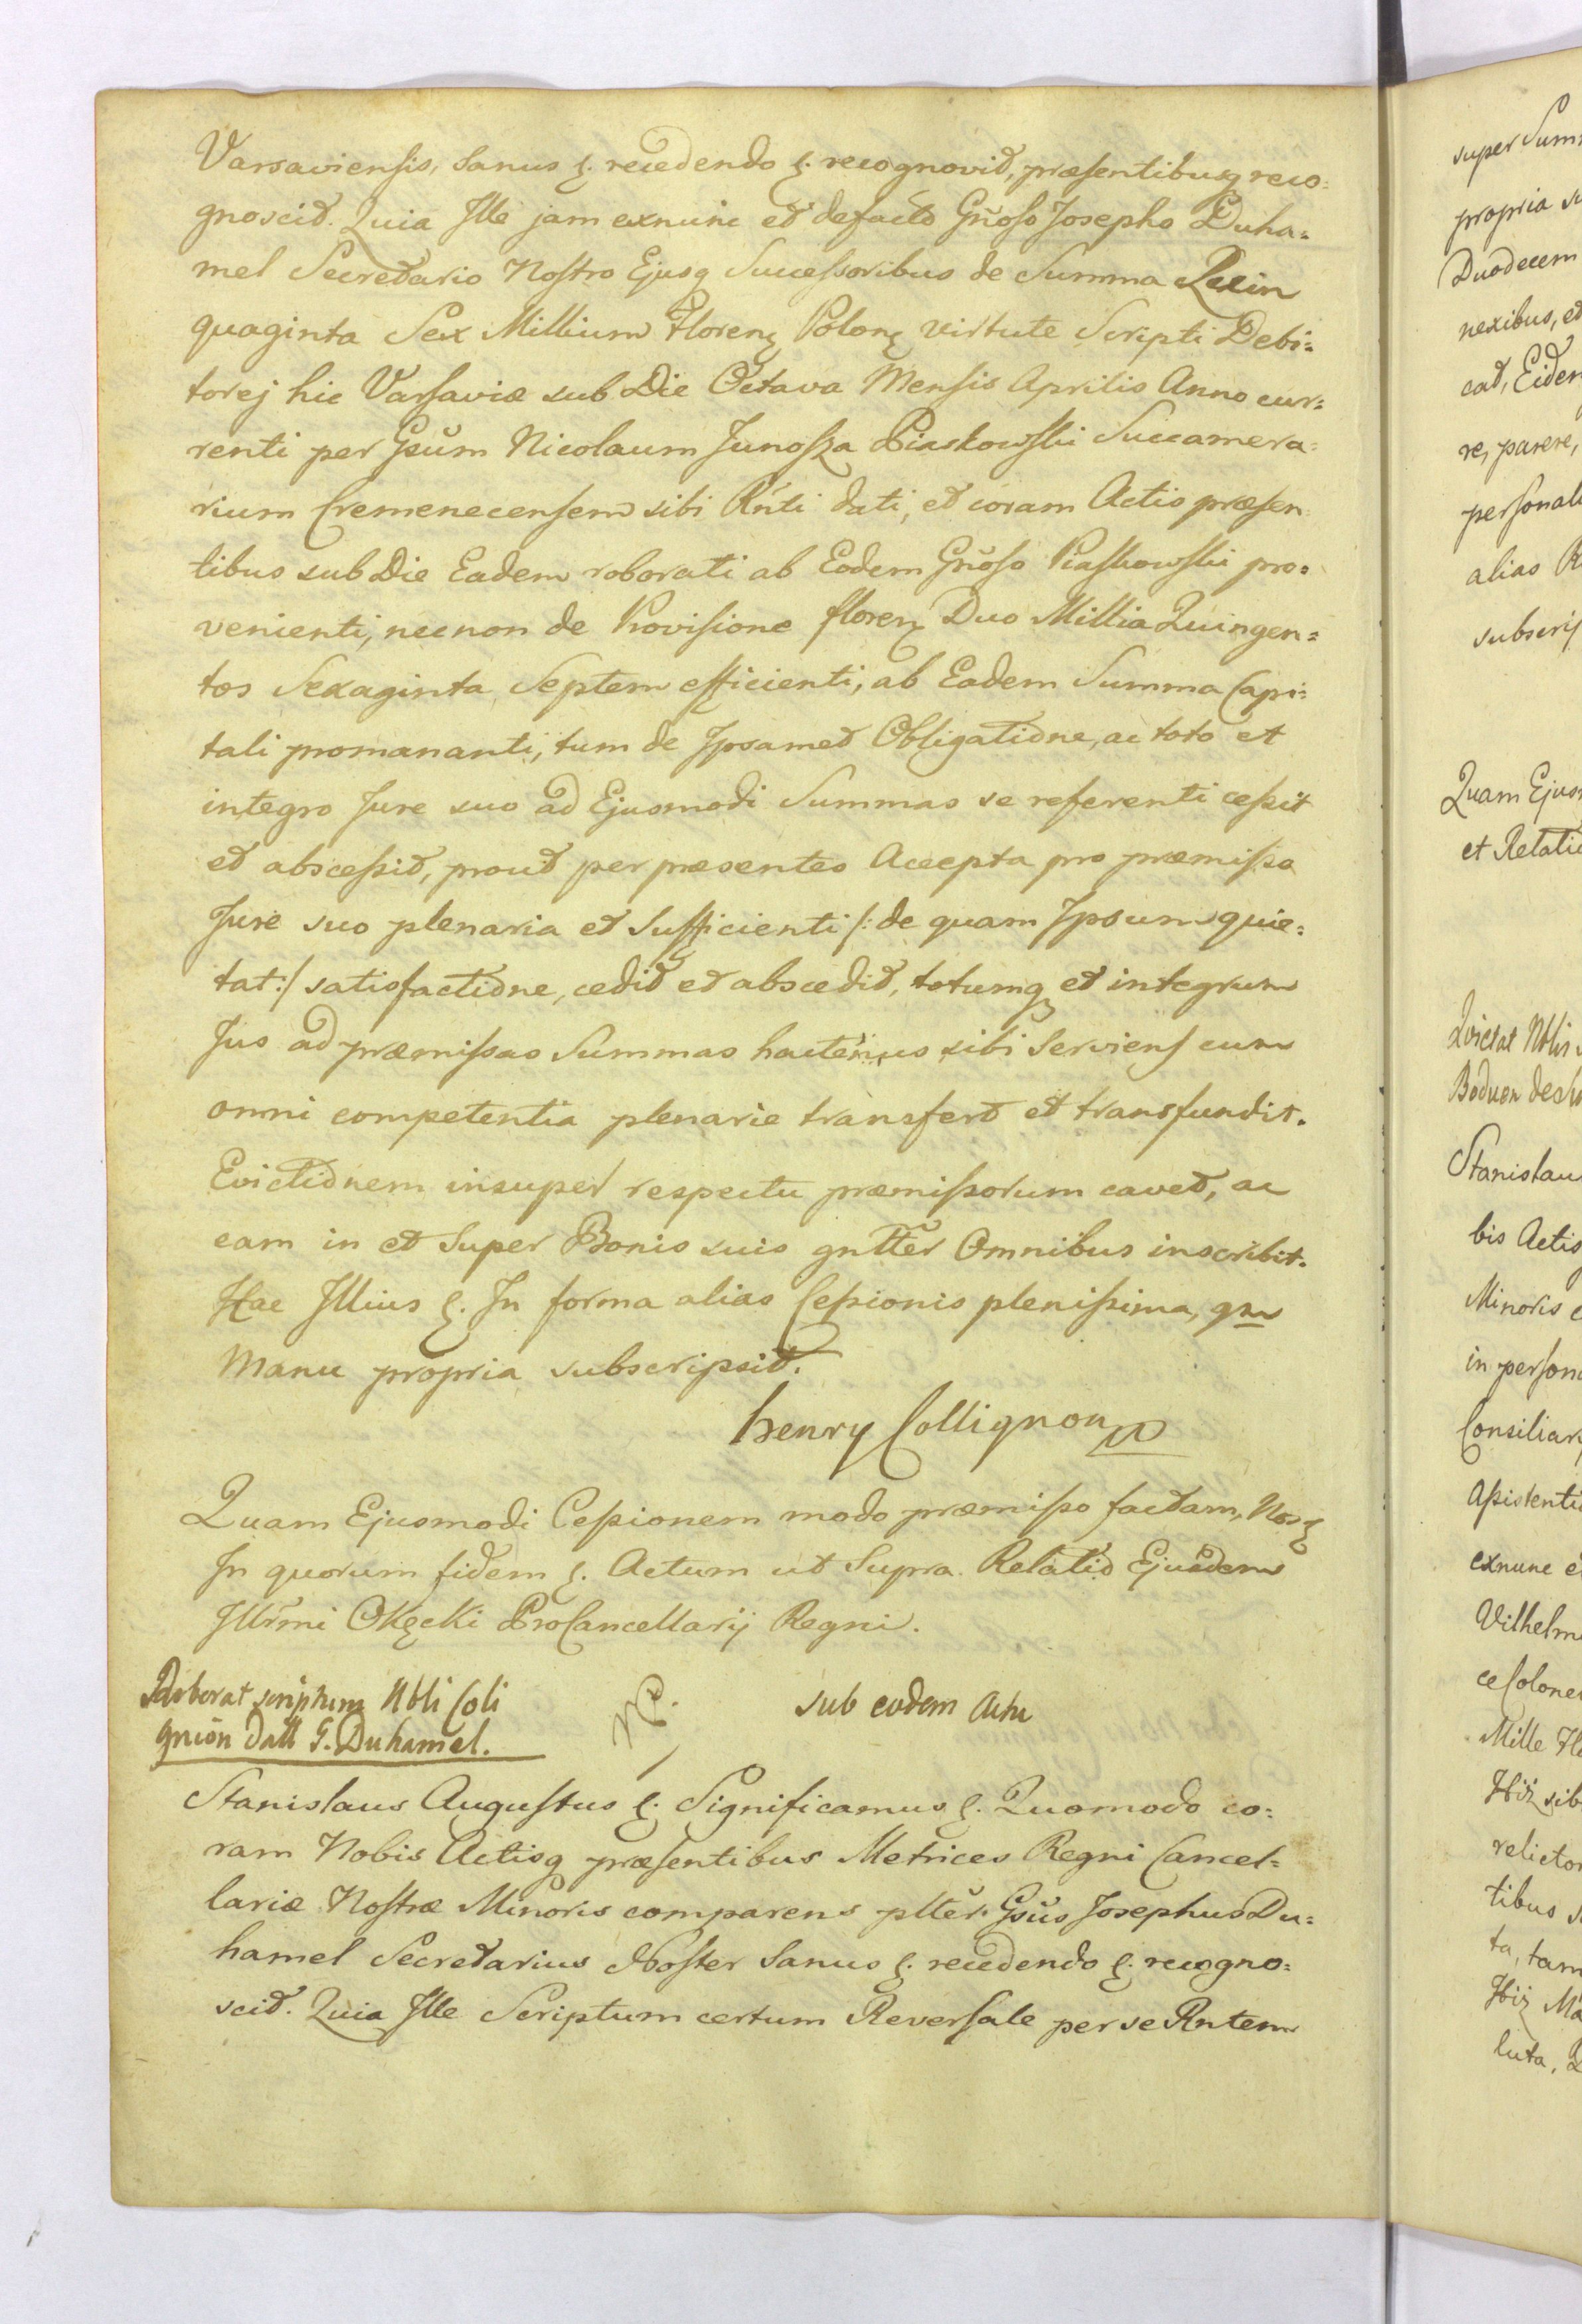 Varsaviensis, Sanus &. recedendo &. recognovit, præsentibusq reco=
gnoscit. Quia Ille jam exnunc et defacto Gnoso Josepho Duha=
mel Secretario Nostro Ejusq Successoribus de Summa Quin
quaginta Sex Millium Floren Polon virtute Scripti Debi=
torej hic Varsaviæ sub Die Octava Mensis Aprilis Anno cur=
renti per Gsum Nicolaum Junosza Piaskowski Succamera=
rium Cremenecensem sibi Rnti dati, et coram Actis præsen
tibus sub Die Eadem roborati ab Eodem Gnoso Piaskowski pro=
venienti, necnon de Provisione floren Duo Millia Quingen=
tos Sexaginta Septem efficienti, ab Eadem Summa Capi=
tali promananti, tum de Ipsamet Obligatione, ac toto et
integro Jure suo ad Ejusmodi Summas se referenti cessit
et abscessit, prout per præsentes Accepta pro præmisso
Jure suo plenaria et Sufficienti /: de quam Ipsum quie=
tat :/ satisfactione, cedit et abscedit, totumq et integrum
Jus ad præmissas Summas hactenus sibi Serviens cum
omni competentia plenarie transfert et transfundit.
Evictionem insuper respectu præmissorum cavet, ac
eam in et Super Bonis suis gntter Omnibus inscribit.
Hac Illius &. In forma alias Cessionis plenissima, qm
Manu propria subscripsit.
henry Collignon
Quam Ejusmodi Cessionem modo præmisso factam, Nos &
In quorum fidem &. Actum ut Supra. Relatio Ejusdem
Illrmi Okęcki ProCancellarij Regni.
Roborat scriptum Nbli Coli
gnion datt G. Duhamel.
sub eodem Actu
Stanislaus Augustus &. Significamus &. Quomodo co=
ram Nobis Actisq præsentibus Metrices Regni Cancel=
lariæ Nostræ Minoris comparens pltter Gsus Josephus Du=
hamel Secretarius Noster Sanus &. recedendo &. recogno=
scit. Quia Ille Scriptum certum Reversale per se Rntem
super Sum
propria
Duodecem
nexibus, et
cat, Eidem
re, parere,
personal
alias
subscrip
Quam Ejus
et Relatio
Quietat Nblis
Boduen
Stanislau
bis Actis
Minoris
in person
Consiliar
Assistenti
exnunc
Vilhelm
ce Colone
Mille
sib
relictor
tibus
ta, tam
luta,